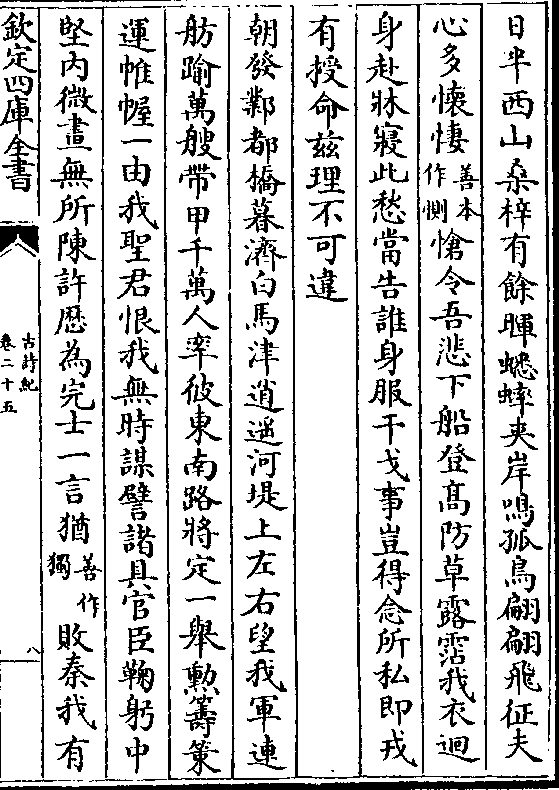 日半西山桑梓有餘暉蟋蟀夹岸鳴孤鳥翩翩飛征夫
心多懷悽善本作惻愴令吾悲下船登髙防草露霑我衣迴
身赴牀寢此愁當告誰身服干戈事豈得念所私即戎
有授命兹理不可違
朝發鄴都橋暮濟白馬津逍遥河堤上左右望我軍連
舫踰萬艘帶甲千萬人率彼東南路將定一舉勲籌策
運帷幄一由我聖君恨我無時謀譬諸具官臣鞠躬中
堅内微畫無所陳許歴為完士一言猶善作獨敗秦我有
欽定四庫全書
古詩紀
卷二十五
八